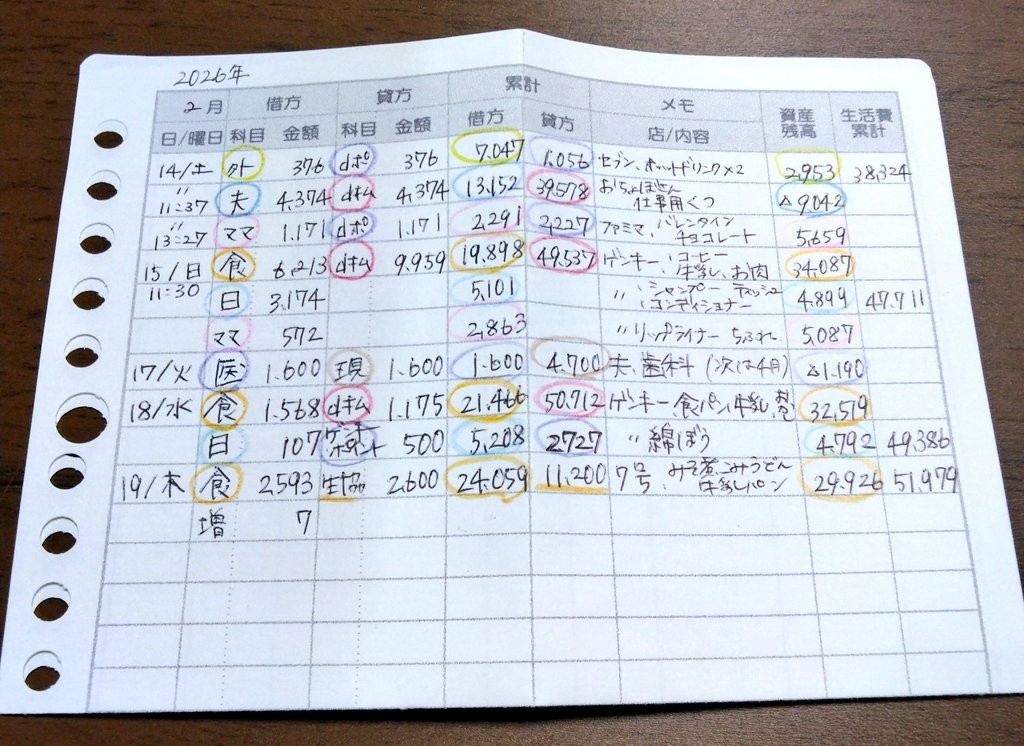 2026年
2月 借方 貸方 累計 メモ 資産残高 生活費累計
日/曜日 科目 金額 科目 金額 借方 貸方 店/内容
14/土 外 376 dポ 376 7.047 1.056 セブン、ホットドリンク×2 2,953 38,324
〃 11:37 夫 4,374 dキム 4,374 13,152 39,578 おちゃほせん 仕事用くつ △9,042
〃 13:27 ママ 1.171 dポ 1.171 2,291 2,227 ファミマ、バレンタイン チョコレート 5,659
15/日 食 6,213 dキム 9.959 19.898 49,537 ゲンキー、コーヒー 牛乳、お肉 34,087
11:30 日 3,174 5,101 〃、シャンプー ティッシュ コンディショナー 4,899 47.711
ママ 572 2,863 〃リップライナー ちふれ 5,087
17/火 医 1.600 現 1.600 1.600 4.700 夫、歯科 (次は4月) △1,190
18/水 食 1.568 dキム 1.175 21.466 50,712 ゲンキー、食パン、牛乳 32,519
日 107 500 5,208 2727 〃綿ぼう 4.792 49,386
19/木 食 2,593 生協 2,600 24.059 11,200 7号、みそ煮こみうどん 牛乳パン 29,926 51,979
増 7